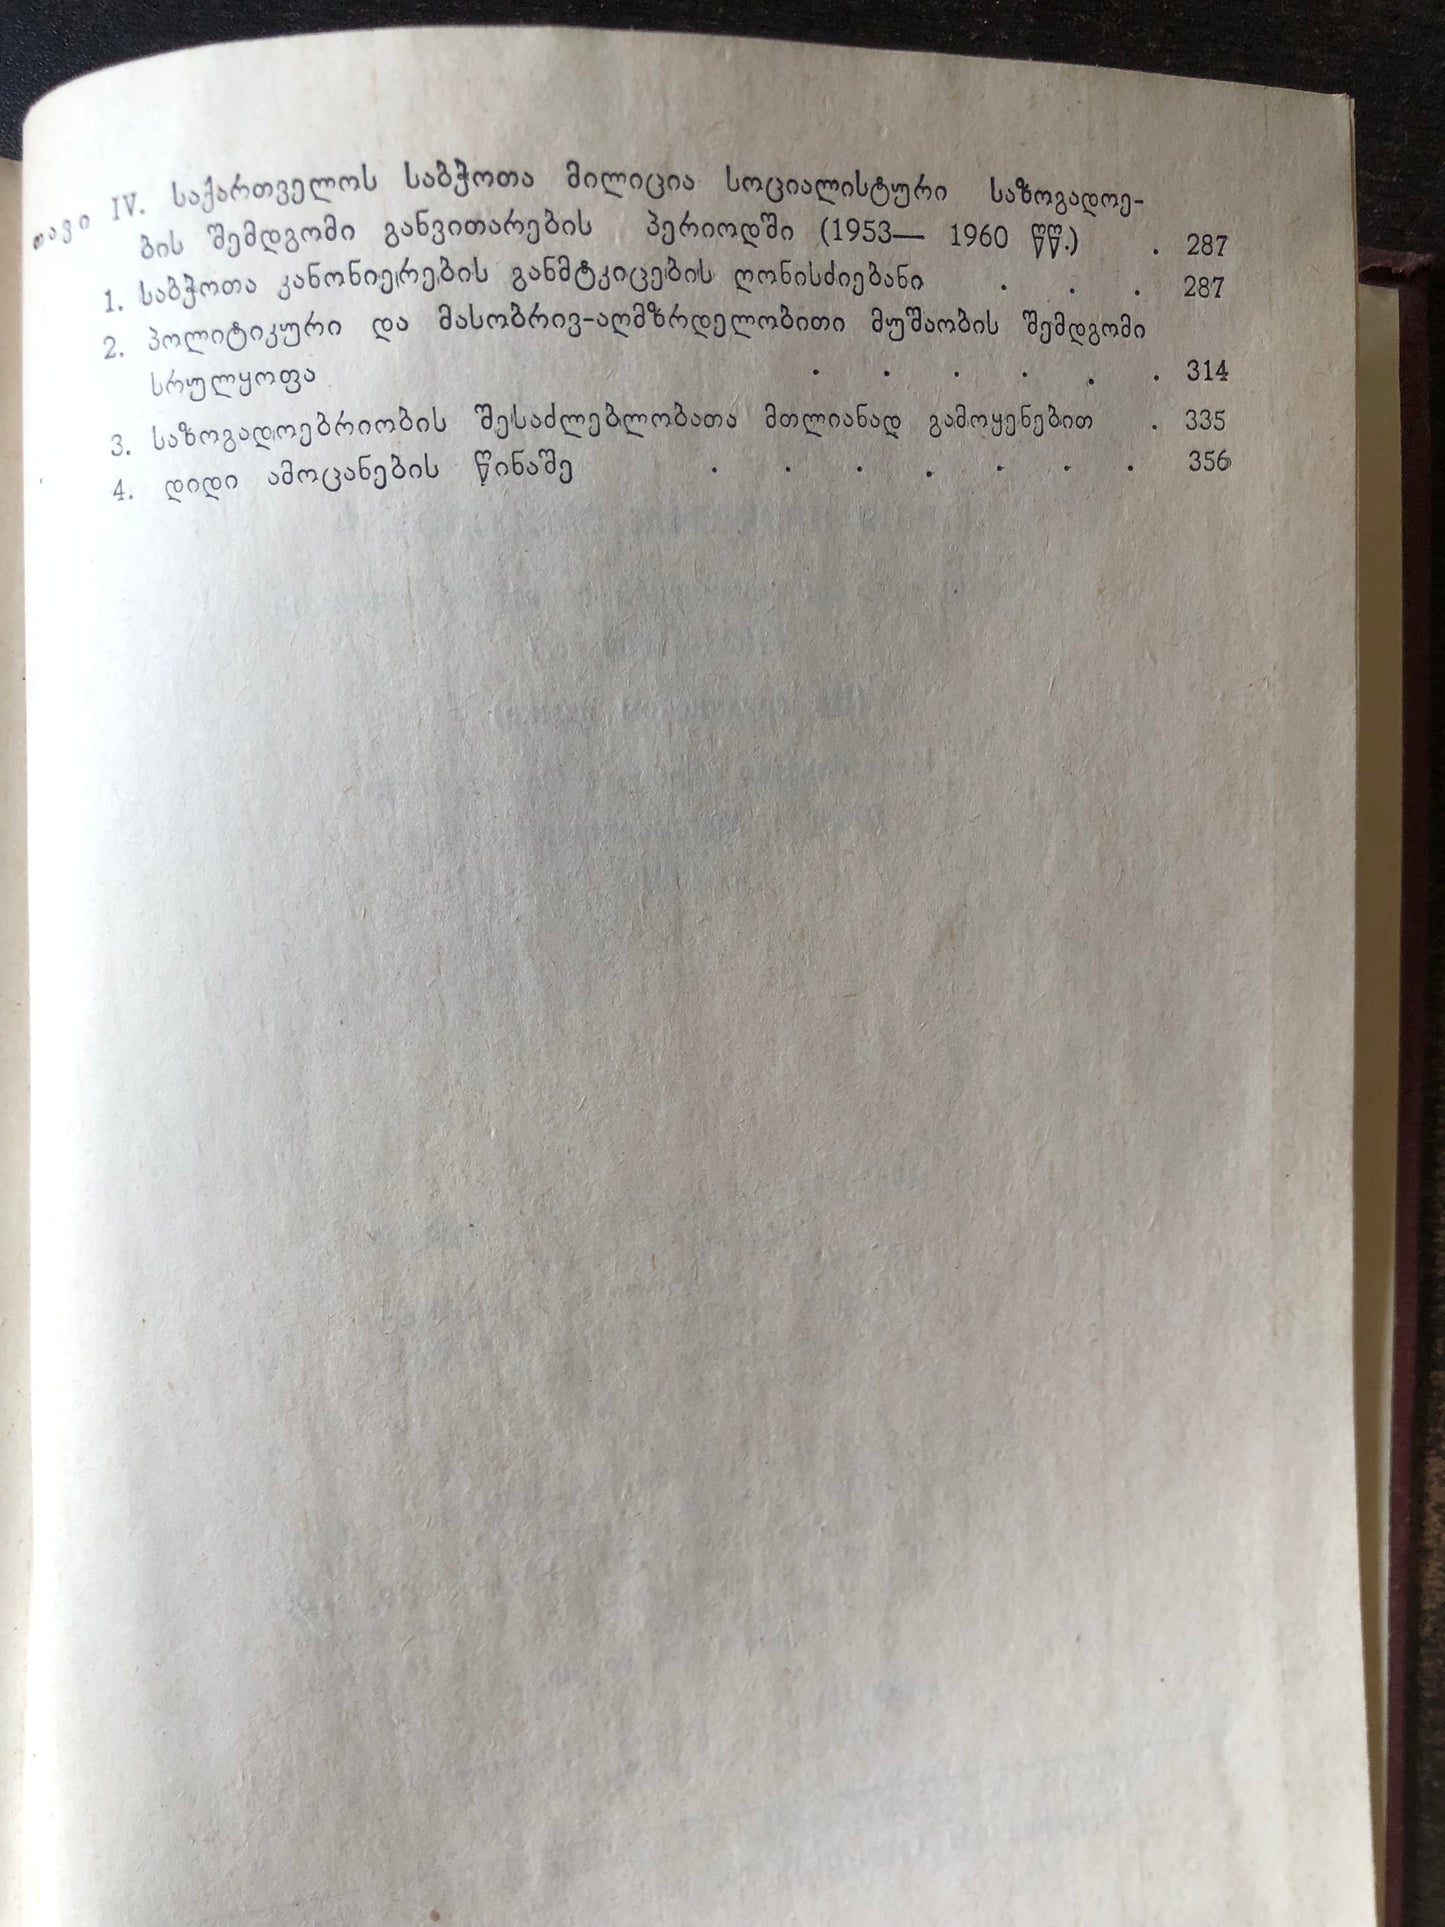 თავი IV. საქართველოს საბჭოთა მილიცია სოციალისტური საზოგადოე-
ბის შემდგომი განვითარების პერიოდში (1953— 1960 წწ.) . 287
1. საბჭოთა კანონიერების განმტკიცების ღონისძიებანი . . . 287
2. პოლიტიკური და მასობრივ-აღმზრდელობითი მუშაობის შემდგომი
სრულყოფა . . . . . . 314
3. საზოგადოებრიობის შესაძლებლობათა მთლიანად გამოყენებით . 335
4. დიდი ამოცანების წინაშე . . . . . . . 356